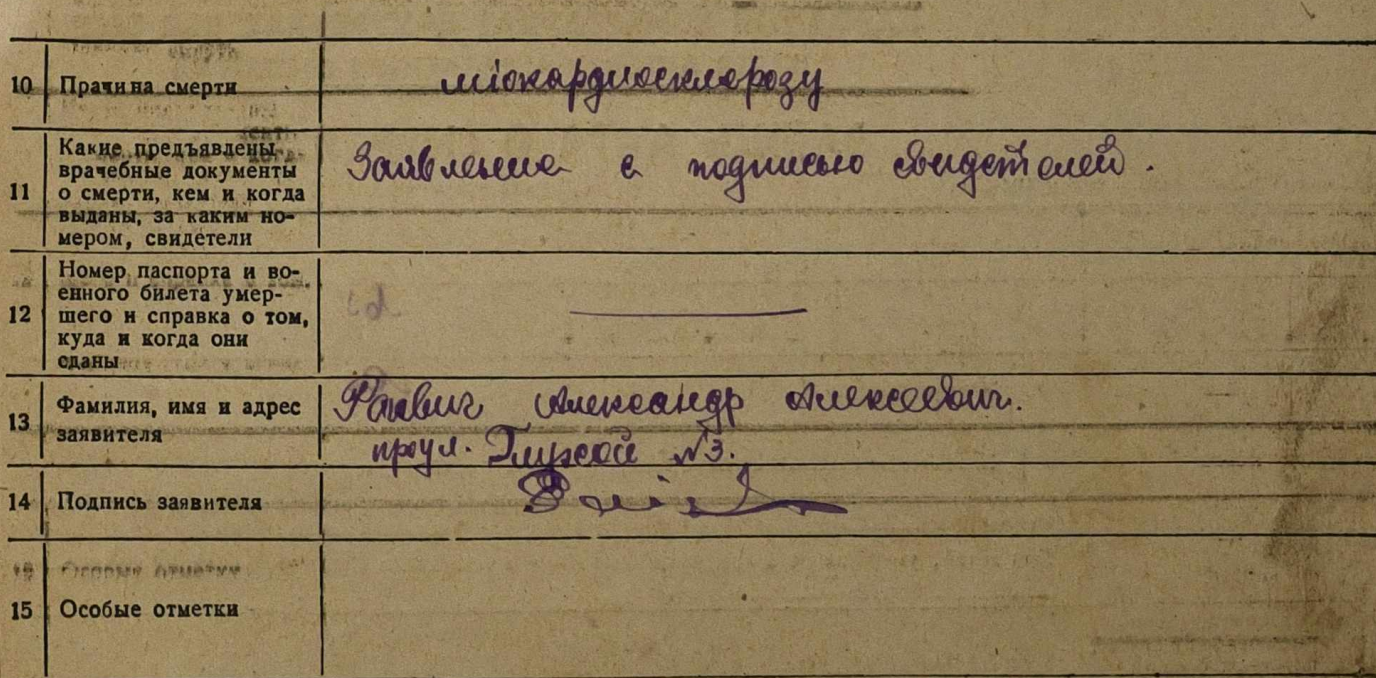 10 Прачина смерти міокардиосклорозу
11 Какие предъявлены
врачебные документы
о смерти, кем и когда
выданы, за каким но-
мером, свидетели
Заявление с подписью свидетелей.
12 Номер паспорта и во-
енного билета умер-
шего и справка о том,
куда и когда они
сданы
13 Фамилия, имя и адрес
заявителя
Александр Алексеевич.
проул. Глухой №3.
14 Подпись заявителя
15 Особые отметки